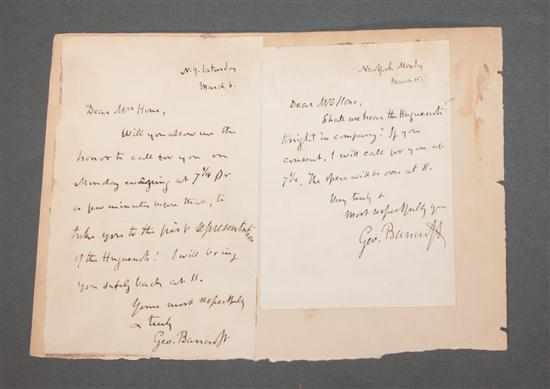 N.Y. Saturday
March 6.
Dear Mrs Hone,
Will you allow me the
honor to call for you on
Monday evening at 7 1/4 or
a few minutes before then, to
take you to the first representation
of the Huguenots? I will bring
you safely back at 11.
Yours most respectfully
& truly
Geo. Bancroft
New York Monday
March
Dear Mrs Hone,
Shall we hear the Huguenots
tonight in company? If you
consent, I will call for you at
7 1/4. The opera will be over at 11.
Very truly &
most respectfully yours
Geo. Bancroft